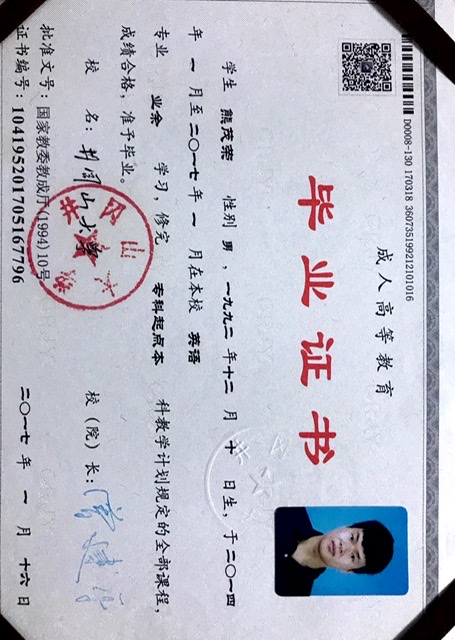 D0008-130 170318 360735199212101016
成人高等教育
毕业证书
学生 熊茂荣 性别 男 ，一九九二 年 十二 月 十 日生，于 二〇一四
年 一 月至 二〇一七 年 一 月在本校 英语
专业 业余 学习，修完 专科起点本 科教学计划规定的全部课程，
成绩合格，准予毕业。
校 名：井冈山大学 校（院）长：
批准文号：国家教委教成厅(1994)10号
证书编号：104195201705167796 二〇一七 年 一 月 十六 日
井冈山大学